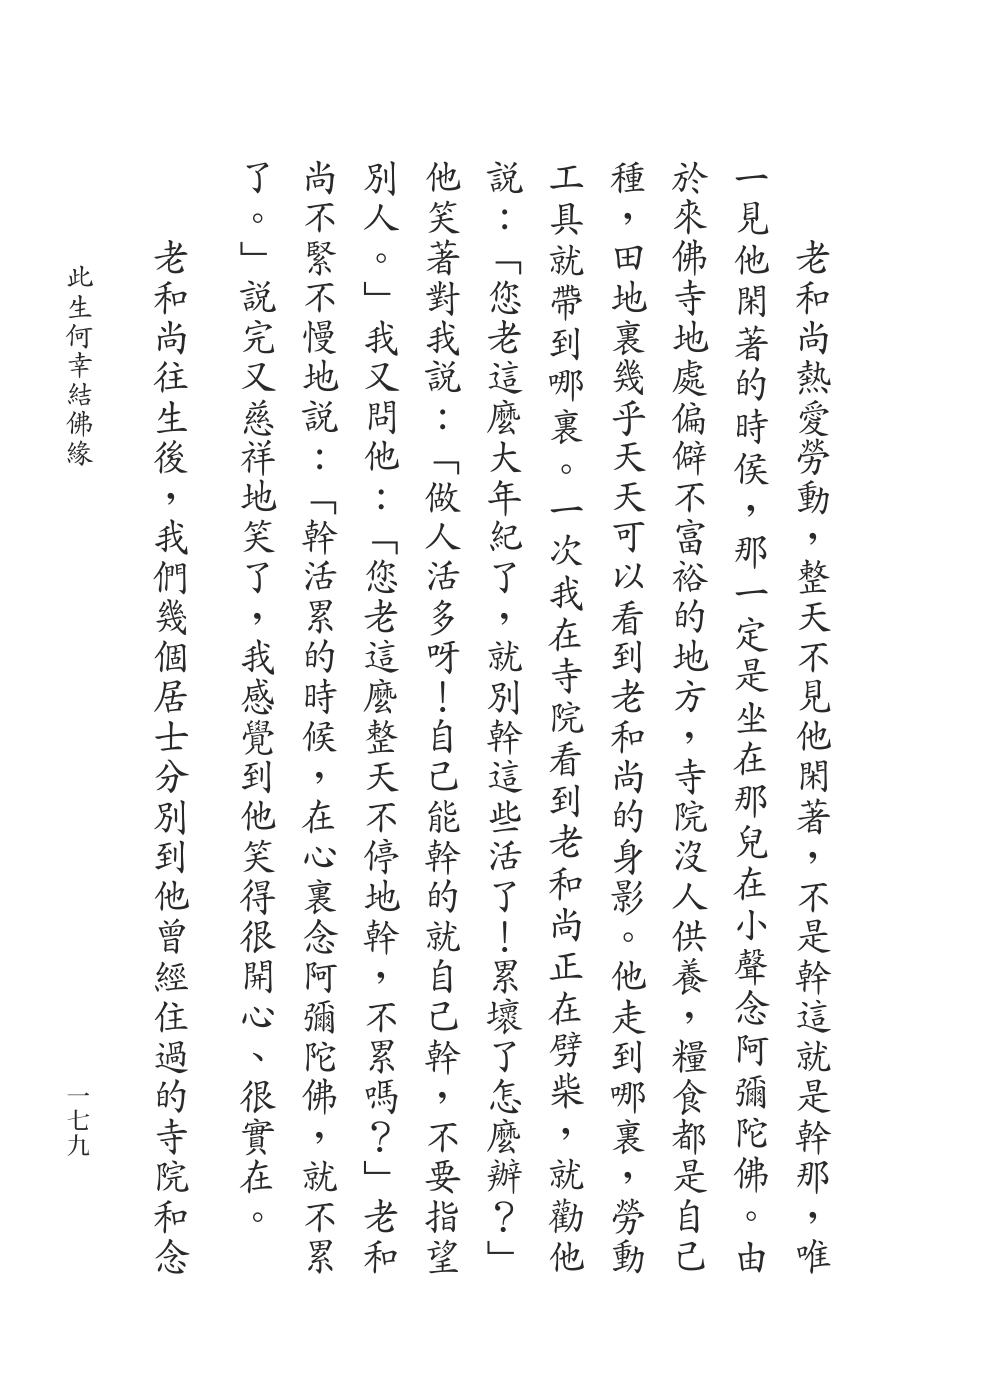 老和尚熱愛勞動，整天不見他閑著，不是幹這就是幹那，唯
一見他閑著的時侯，那一定是坐在那兒在小聲念阿彌陀佛。由
於來佛寺地處偏僻不富裕的地方，寺院沒人供養，糧食都是自己
種，田地裏幾乎天天可以看到老和尚的身影。他走到哪裏，勞動
工具就帶到哪裏。一次我在寺院看到老和尚正在劈柴，就勸他
説：「您老這麼大年紀了，就別幹這些活了！累壞了怎麼辦？」
他笑著對我説：「做人活多呀！自己能幹的就自己幹，不要指望
別人。」我又問他：「您老這麼整天不停地幹，不累嗎？」老和
尚不緊不慢地説：「幹活累的時候，在心裏念阿彌陀佛，就不累
了。」説完又慈祥地笑了，我感覺到他笑得很開心、很實在。
老和尚往生後，我們幾個居士分別到他曾經住過的寺院和念
此生何幸結佛緣
一七九